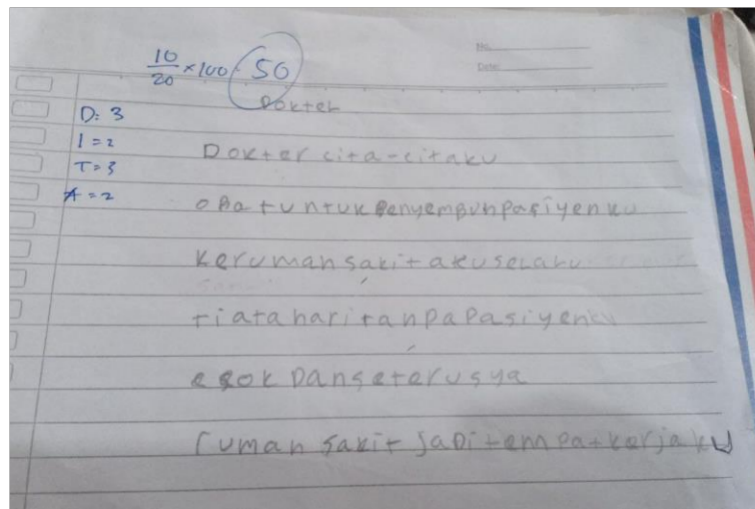 No.
Date:
10/20 × 100 = 50
Dokter
D: 3
1 = 2
T = 3
A = 2
Dokter cita-citaku
obatuntuk penyembuhpasiyenku
Kerumahsakitakuselalu
tiataharitanpapasiyenku
esok Danseterusya
rumah sakit jadi tempatkerjaku